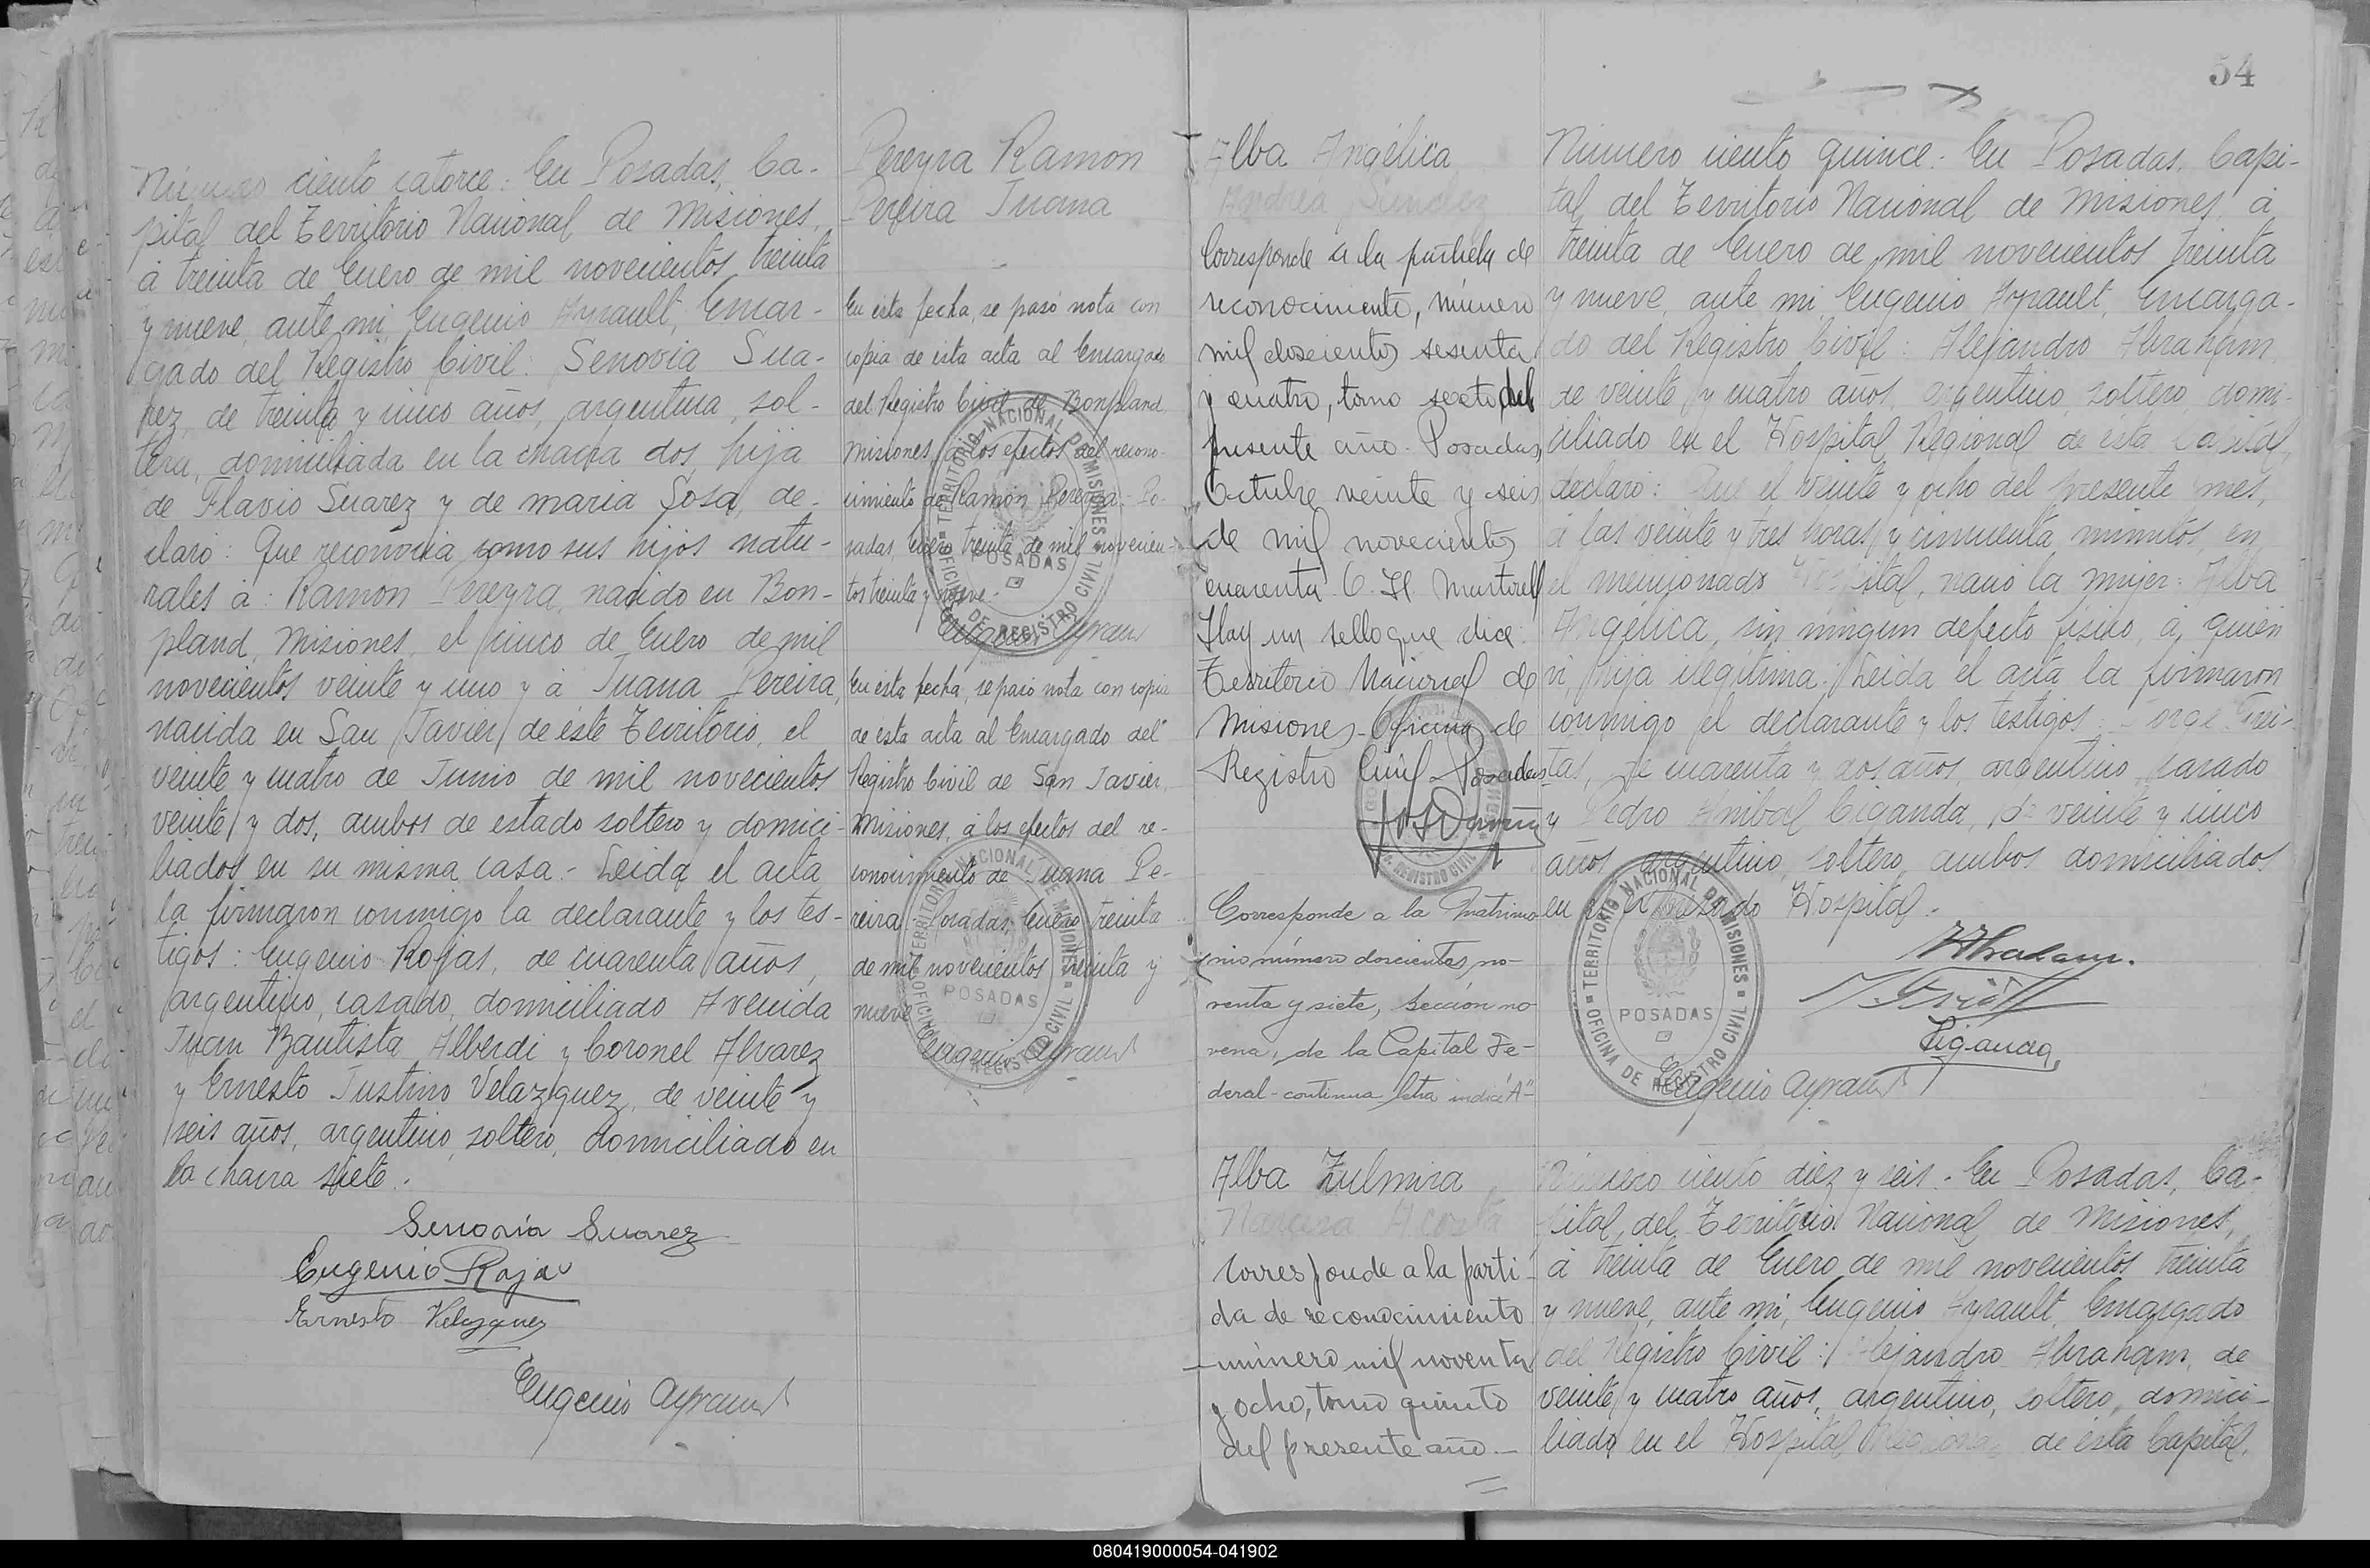 54
Número ciento catorce: En Posadas, Ca-
pital del Territorio Nacional de Misiones,
á treinta de Enero de mil novecientos treinta
y nueve, ante mi, Eugenio Ayrault, Encar-
gado del Registro Civil: Senovia Sua-
rez, de treinta y cinco años, argentina, sol-
tera, domiciliada en la chacra dos, hija
de Flavio Suarez y de maria Sosa, de-
claró: Que reconocia como sus hijos natu-
rales á: Ramon Pereyra, nacido en Bon-
pland, Misiones, el cinco de Enero de mil
novecientos veinte y uno y á Juana Pereira,
nacida en San Javier, de éste Territorio, el
veinte y cuatro de Junio de mil novecientos
veinte y dos, ambos de estado soltero y domici-
liados en su misma casa.- Leida el acta
la firmaron conmigo la declarante y los tes-
tigos: Eugenio Rojas, de cuarenta años,
argentino, casado, domiciliado Avenida
Juan Bautista Alberdi y Coronel Alvarez
y Ernesto Justino Velazquez, de veinte y
seis años, argentino, soltero, domiciliado en
la chacra siete.-
Senovia Suarez
Eugenio Rojas
Ernesto Velazquez
Eugenio Ayrault
Pereyra Ramon
Pereira Juana
En esta fecha, se pasó nota con
copia de esta acta al Encargado
del Registro Civil de Bonpland,
Misiones, á los efectos del recono-
cimiento de Ramón Pereyra.- Po-
sadas, Enero treinta de mil novecien-
tos treinta y nueve.-
Eugenio Ayrault
En esta fecha, se pasó nota con copia
de esta acta al Encargado del
Registro Civil de San Javier,
Misiones, á los efectos del re-
conocimiento de Juana Pe-
reira.- Posadas, Enero treinta
de mil novecientos treinta y
nueve.
Eugenio Ayrault
TERRITORIO NACIONAL DE MISIONES
POSADAS
OFICINA DE REGISTRO CIVIL
TERRITORIO NACIONAL DE MISIONES
POSADAS
OFICINA DE REGISTRO CIVIL
Alba Angélica
Andrea
Corresponde a la partida de
reconocimiento, número
mil doscientos sesenta
y cuatro, tomo sexto del
presente año. Posadas,
Octubre veinte y seis
de mil novecientos
cuarenta. C. H. Martorell
Hay un sello que dice:
Territorio Nacional de
Misiones-Oficina de
Registro Civil-Posadas
REGISTRO CIVIL
Corresponde a la Matrimo
nio número doscientos no-
venta y siete, Sección no
vena, de la Capital Fe-
deral-continua letra indice "A"-
Número ciento quince: En Posadas, Capi-
tal del Territorio Nacional de Misiones, á
treinta de Enero de mil novecientos treinta
y nueve, ante mi, Eugenio Ayrault, Encarga-
do del Registro Civil: Alejandro Abraham,
de veinte y cuatro años, argentino, soltero, domi-
ciliado en el Hospital Regional de esta Capital,
declaró: Que el veinte y ocho del presente mes,
á las veinte y tres horas y cincuenta minutos, en
el mencionado Hospital, nació la mujer: Alba
Angélica, sin ningun defecto fisico, á quien
vi, hija ilegitima.- Leida el acta la firmaron
conmigo el declarante y los testigos: Jorge Frei-
tas, de cuarenta y dos años, argentino, casado
y Pedro Anibal Ciganda, de veinte y cinco
años, argentino, soltero, ambos domiciliados
en el Hospital.-
Abraham.
Ciganda
Eugenio Ayrault
TERRITORIO NACIONAL DE MISIONES
POSADAS
OFICINA DE REGISTRO CIVIL
Alba Zulmira
Narcisa Acosta
Corresponde a la parti-
da de reconocimiento
número mil noventa
y ocho, tomo quinto
del presente año.-
Número ciento diez y seis.- En Posadas, Ca-
pital del Territorio Nacional de Misiones,
á treinta de Enero de mil novecientos treinta
y nueve, ante mi, Eugenio Ayrault, Encargado
del Registro Civil: Alejandro Abraham, de
veinte y cuatro años, argentino, soltero, domici-
liado en el Hospital Regional de ésta Capital,
080419000054-041902